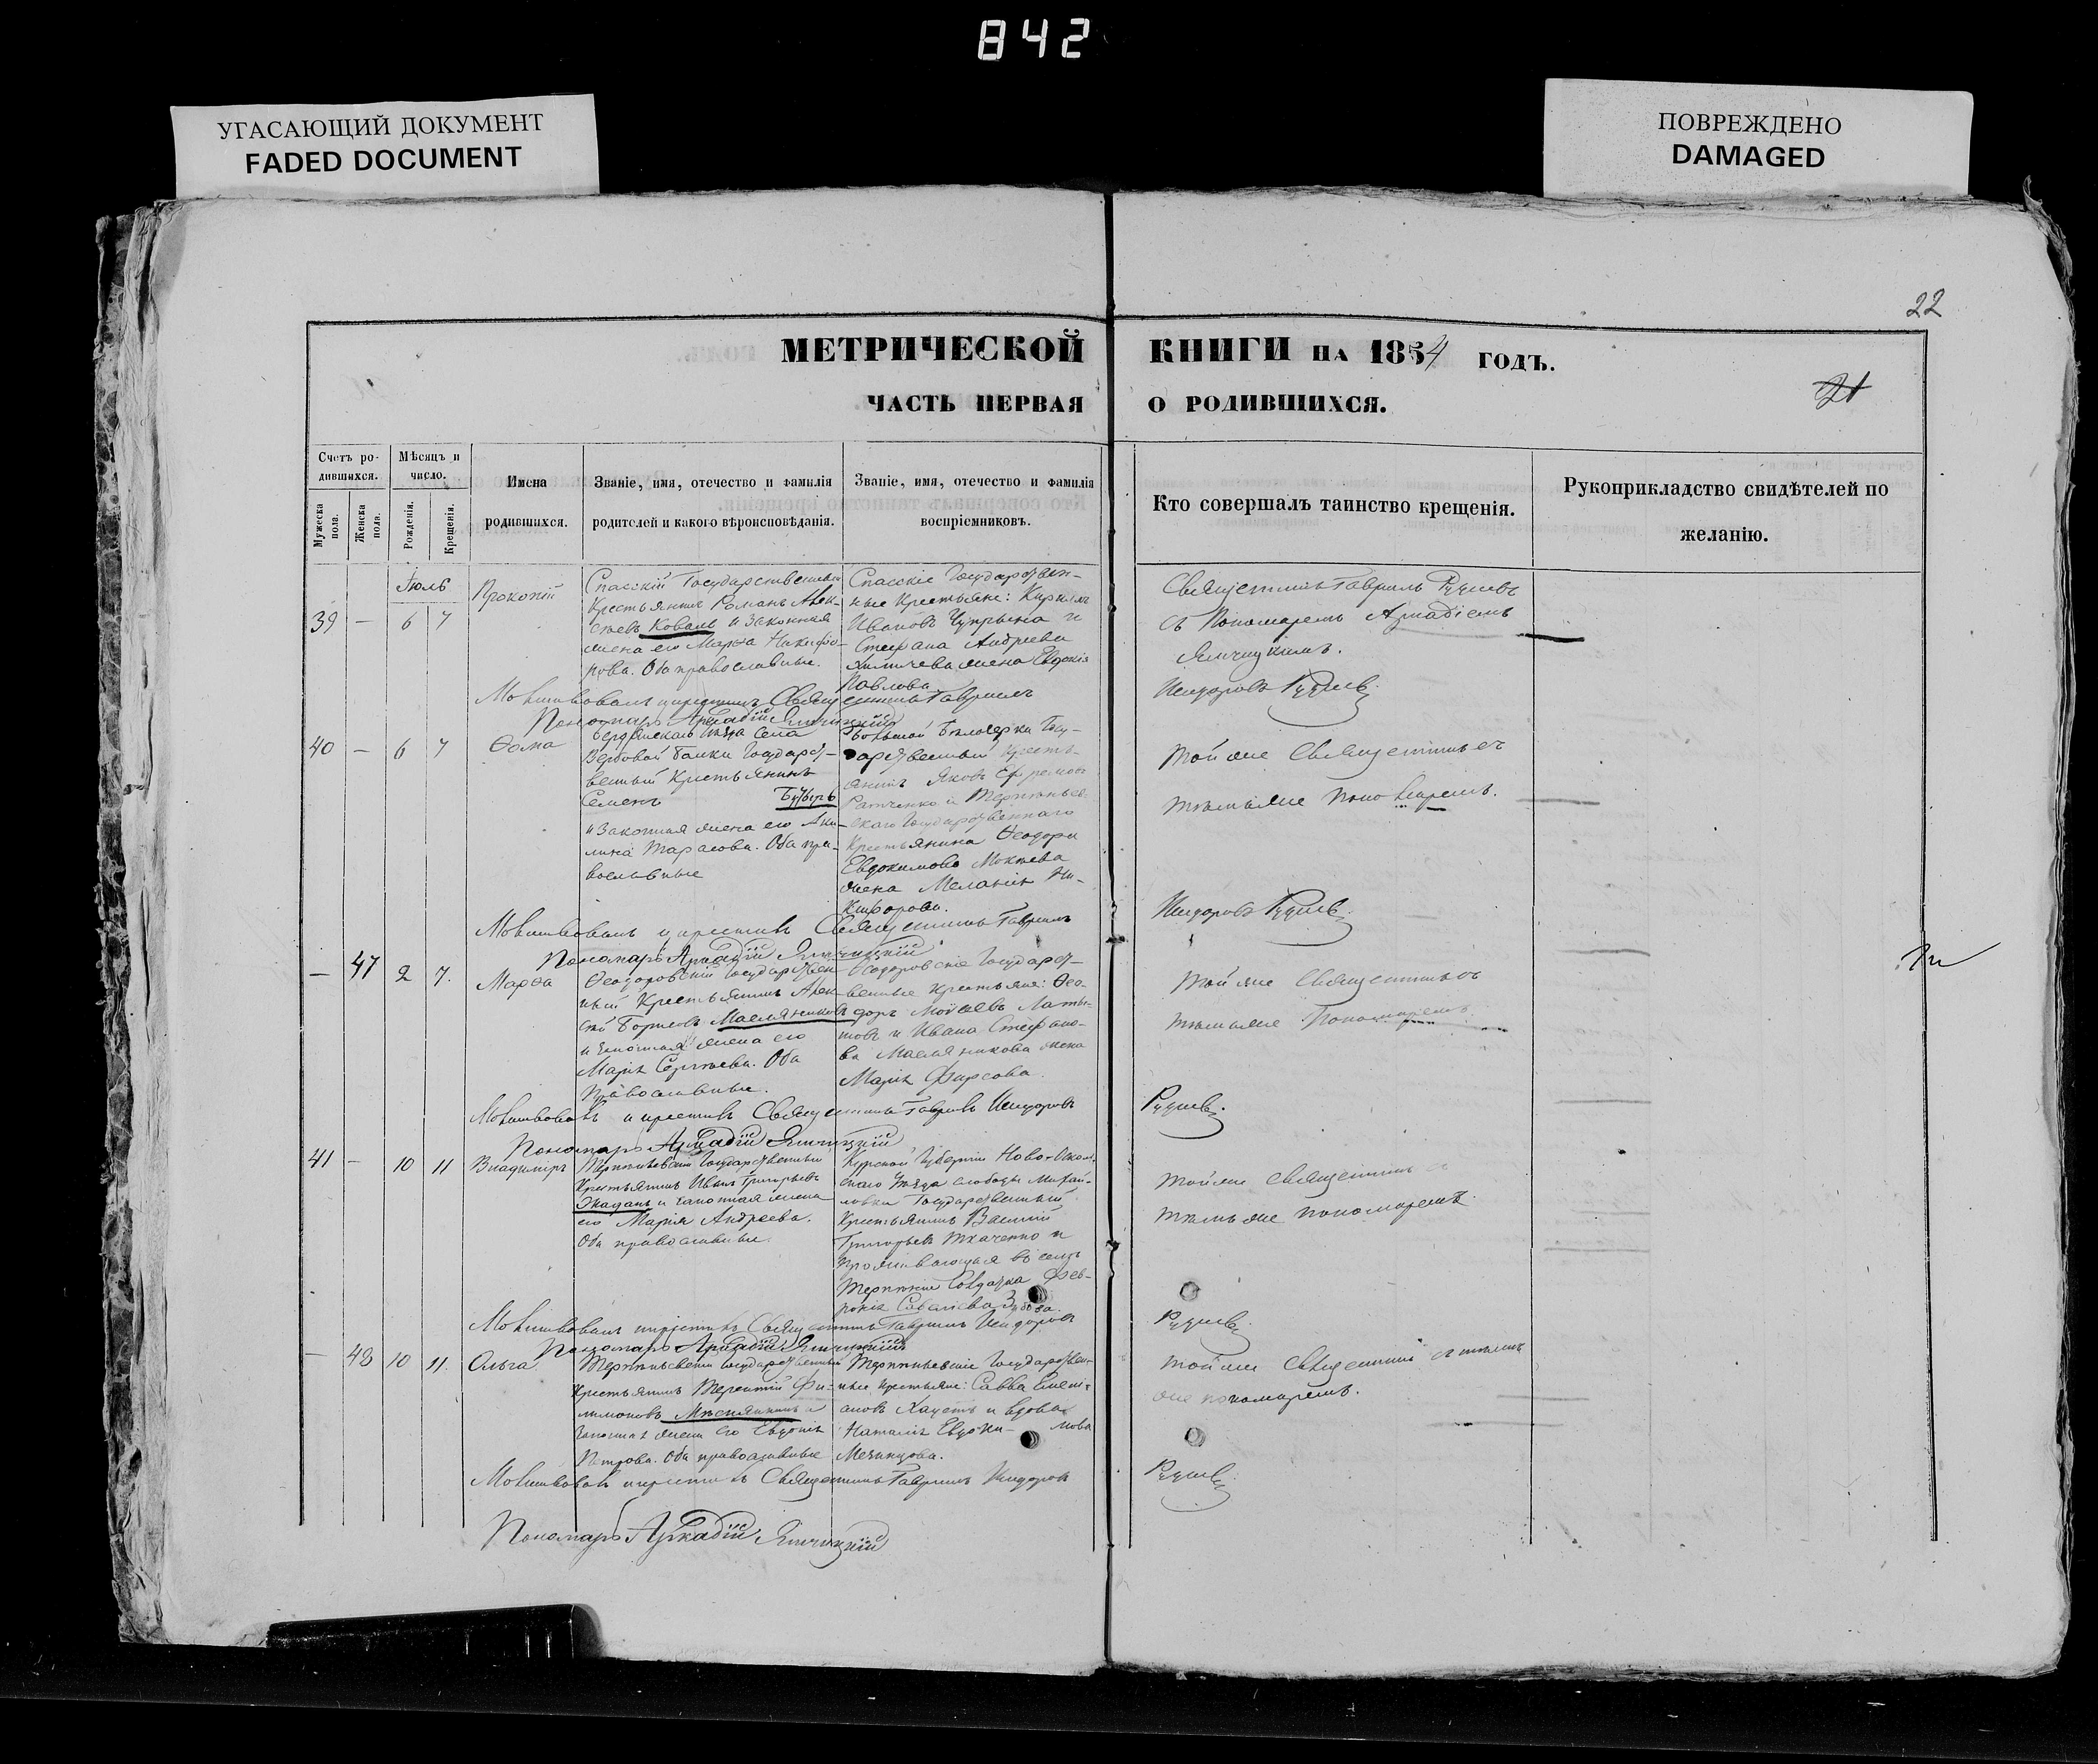 842
УГАСАЮЩИЙ ДОКУМЕНТ
FADED DOCUMENT
ПОВРЕЖДЕНО
DAMAGED
22
МЕТРИЧЕСКОЙ КНИГИ НА 1854 ГОДЪ.
21
ЧАСТЬ ПЕРВАЯ О РОДИВШИХСЯ.
Счетъ ро-
дившихся.
Мужеска
пола.
Женска
пола.
Мѣсяцъ и
число.
Рожденія.
Крещенія.
Имена
родившихся.
Званіе, имя, отечество и фамилія
родителей и какого вѣроисповѣданія.
Званіе, имя, отечество и фамилія
воспріемниковъ.
Кто совершалъ таинство крещенія.
Рукоприкладство свидѣтелей по
желанію.
Іюль
39 — 6 7
Прокопій
Спасскій Государственный
Крестьянинъ Романъ Алек-
сѣевъ Коваль и законная
жена его Марѳа Никифо-
рова. Оба православные.
Спасскіе Государствен-
ные Крестьяне: Кирилъ
Ивановъ Чупрына и
Стефана Андреева
жена Евдокія
Павлова
Священникъ Гавріилъ Рудневъ
съ Пономаремъ Аркадіемъ
Молитвовалъ и крестилъ Священникъ Гавріилъ
Исидоровъ Рудневъ
Пономарь Аркадій
40 — 6 7
Ѳома
Бердянскаго уѣзда Села
Вербовой Балки Государст-
венный Крестьянинъ
Семенъ
и Законная жена его Аки-
лина Тарасова. Оба пра-
вославные
Большой Бѣлозерки Госу-
дарственный кресть-
янинъ Яковъ Ефремовъ
и Терпѣньев-
скаго Государственнаго
Крестьянина Ѳеодора
Евдокимова Мокѣева
жена Меланія Ни-
кифорова.
Той же Священникъ съ
тѣмъ же пономаремъ.
Молитвовалъ и крестилъ Священникъ Гавріилъ
Исидоровъ Рудневъ
Пономарь Аркадій
— 47 2 7.
Марѳа
Ѳеодоровскій Государствен-
ный Крестьянинъ Алек-
сѣй Масляниковъ
и законная жена его
Марія Сергѣева. Оба
православные.
Ѳеодоровскіе Государст-
венные крестьяне: Ѳео-
доръ Моѵсеевъ Латы-
шовъ и Ивана Стефано-
ва Масляникова жена
Марія Фирсова.
Той же Священникъ съ
тѣмъ же Пономаремъ
Молитвовалъ и крестилъ Священникъ Гавріилъ Исидоровъ
Рудневъ.
Пономарь Аркадій
41 — 10 11
Владиміръ
Терпѣньевскій Государственный
Крестьянинъ Иванъ Григорьевъ
и законная жена
его Марія Андреева.
Оба православные.
Курской Губерніи Ново-Оскол-
скаго Уѣзда слободы Михай-
ловки Государственный
Крестьянинъ Василій
Григорьевъ Ткаченко и
проживающая въ селѣ
Терпѣніи Солдатка Фев-
ронія Савельева Зубова.
Той же Священникъ съ
тѣмъ же пономаремъ.
Молитвовалъ и крестилъ Священникъ Гавріилъ Исидоровъ
Рудневъ.
Пономарь Аркадій
— 48 10 11.
Ольга
Терпѣньевскій Государственный
крестьянинъ Терентій Фи-
лимоновъ и
законная жена его Евдокія
Петрова. Оба православные
Терпѣньевскіе Государствен-
ные крестьяне: Савва Емелі-
ановъ и вдова
Наталія Евдоки- мова
Той же Священникъ съ тѣмъ
же пономаремъ.
Молитвовалъ и крестилъ Священникъ Гавріилъ Исидоровъ
Рудневъ.
Пономарь Аркадій